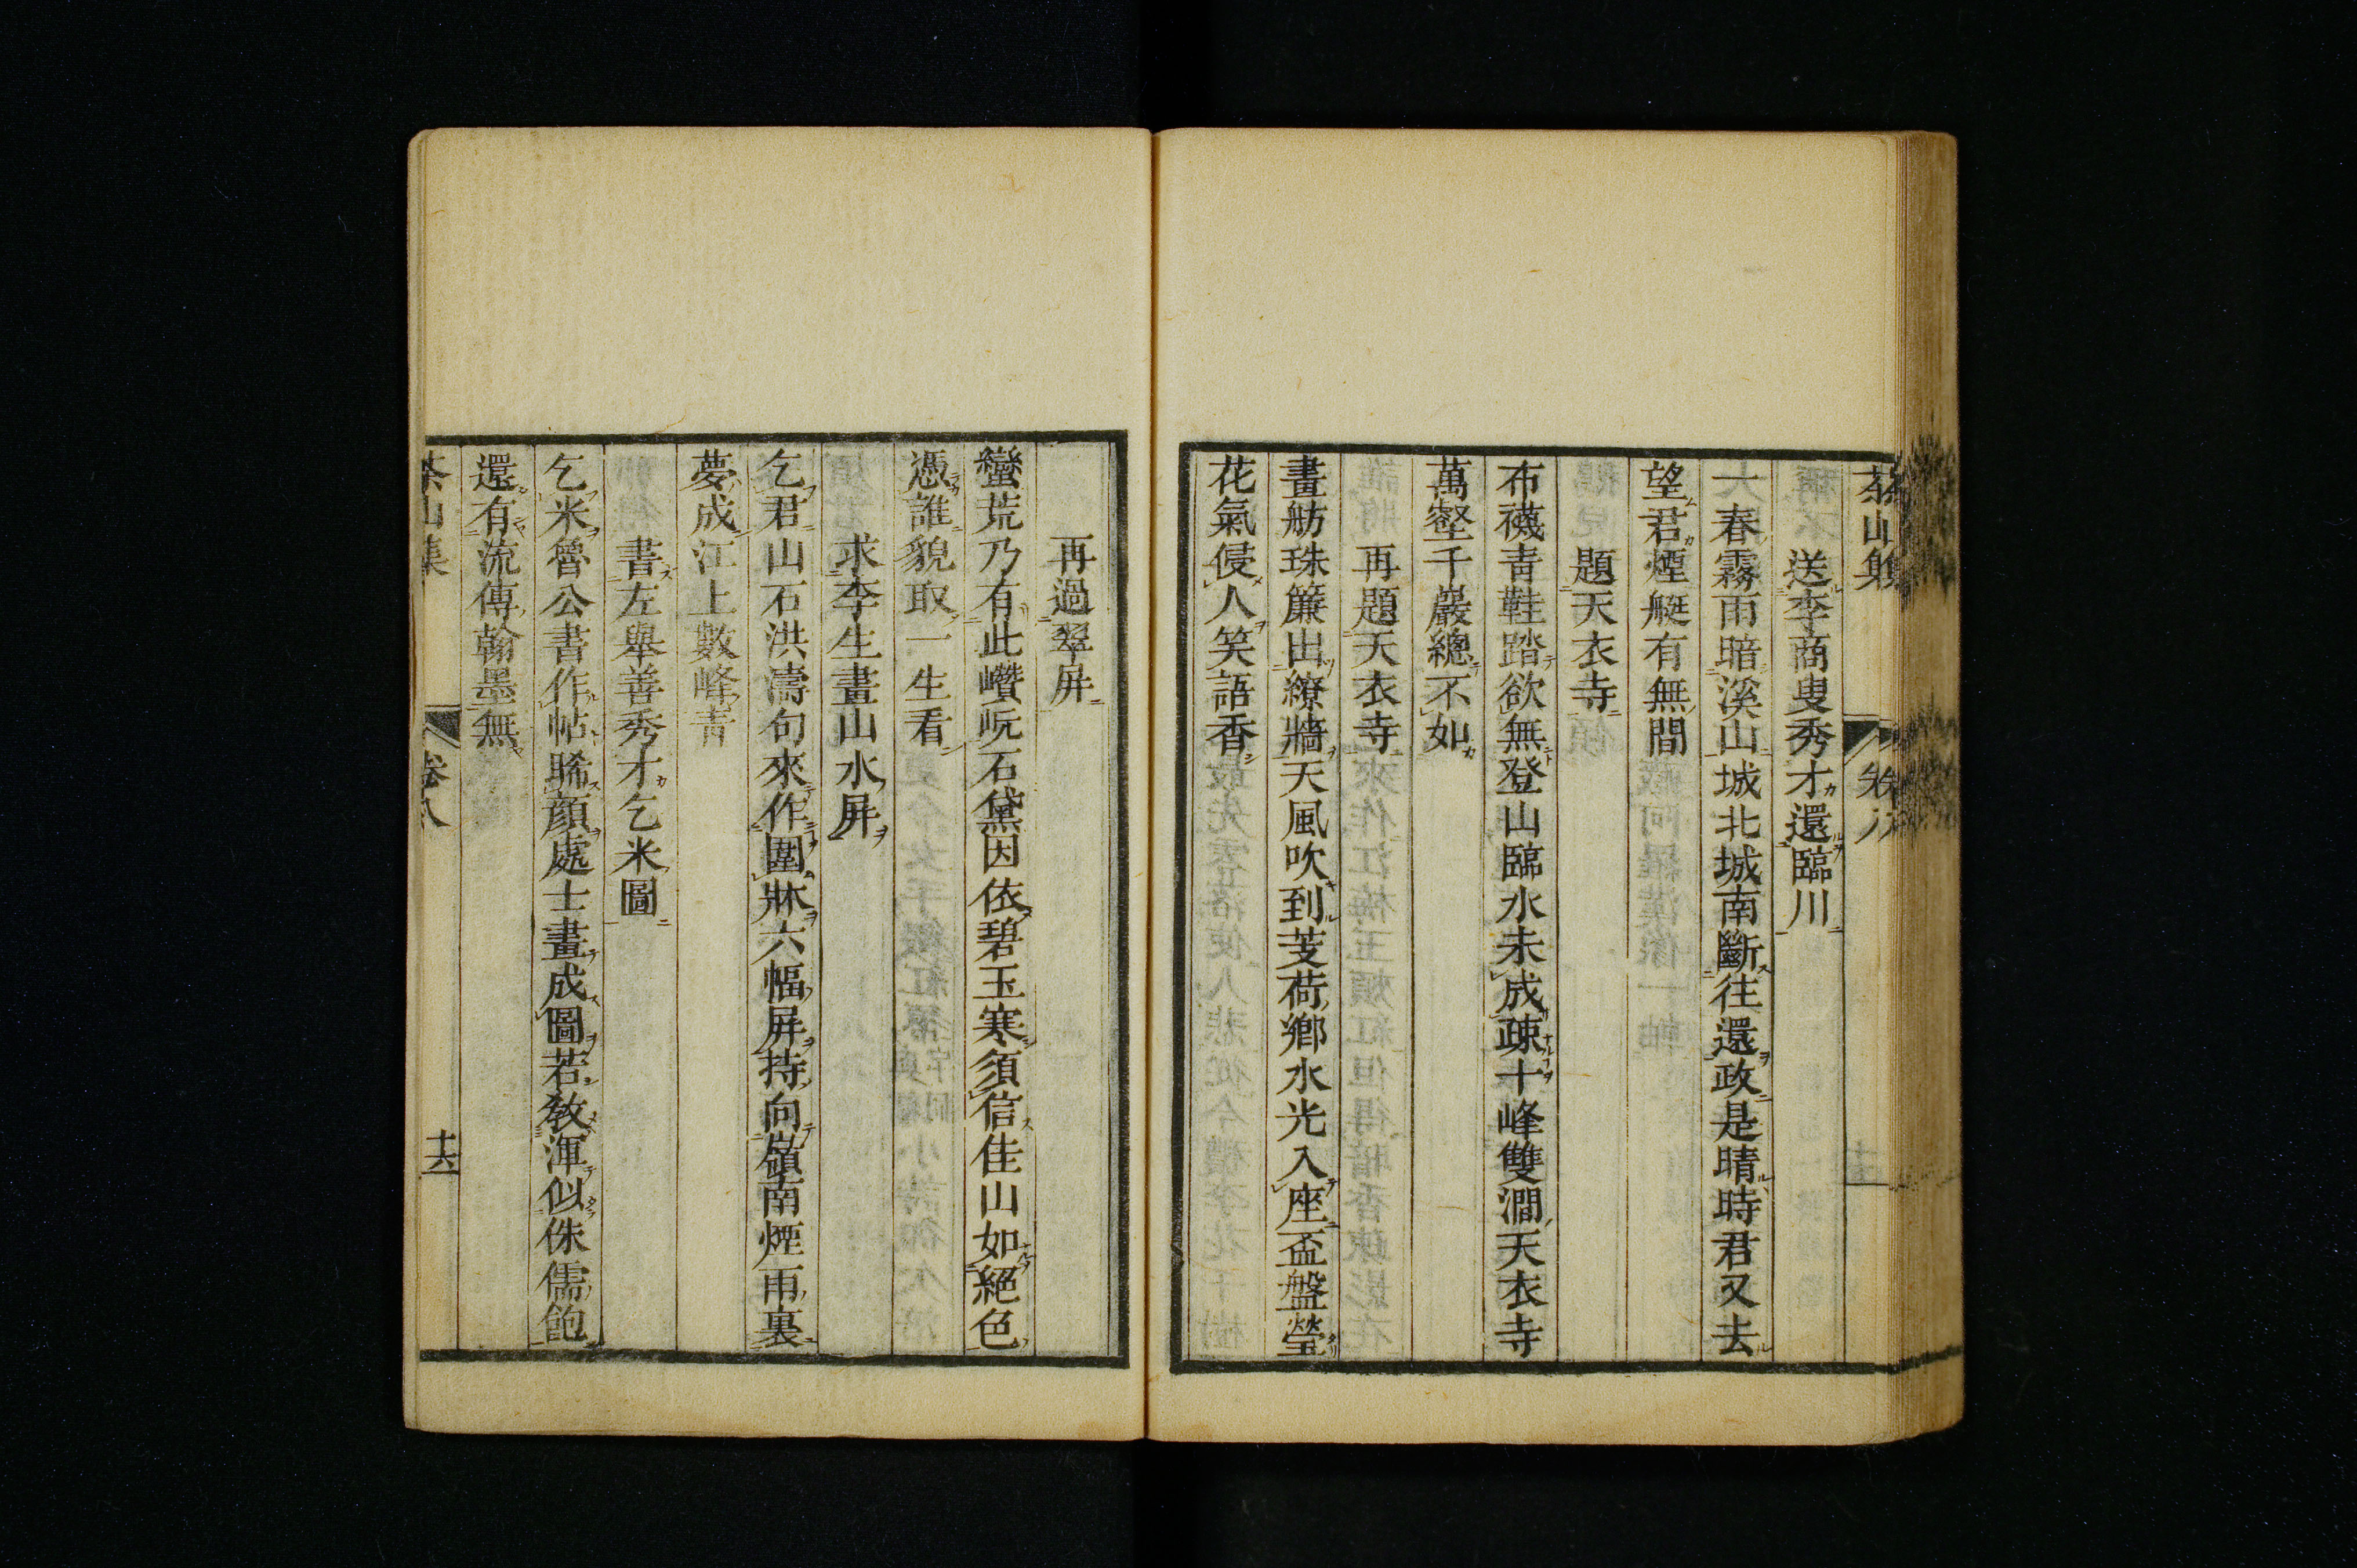 茶山集 卷八
送李商叟秀才還臨川
一春霧雨暗溪山城北城南斷往還政是晴時君又去
望君煙艇有無間
題天衣寺
布襪青鞋踏欲無登山臨水未成疎十峰雙澗天衣寺
萬壑千巖總不如
再題天衣寺
畫舫珠簾出繚牆天風吹到芰荷鄉水光入座盃盤瑩
花氣侵人笑語香
再過翠屏
蠻荒乃有此巑岏石黛因依碧玉寒須信佳山如絕色
憑誰貌取一生看
求李生畫山水屏
乞君山石洪濤句來作圍牀六幅屏持向嶺南煙雨裏
夢成江上數峰青
書左舉善秀才乞米圖
乞米魯公書作帖睎顏處士畫成圖若敎渾似侏儒飽
還有流傳翰墨無
茶山集 卷八 十六